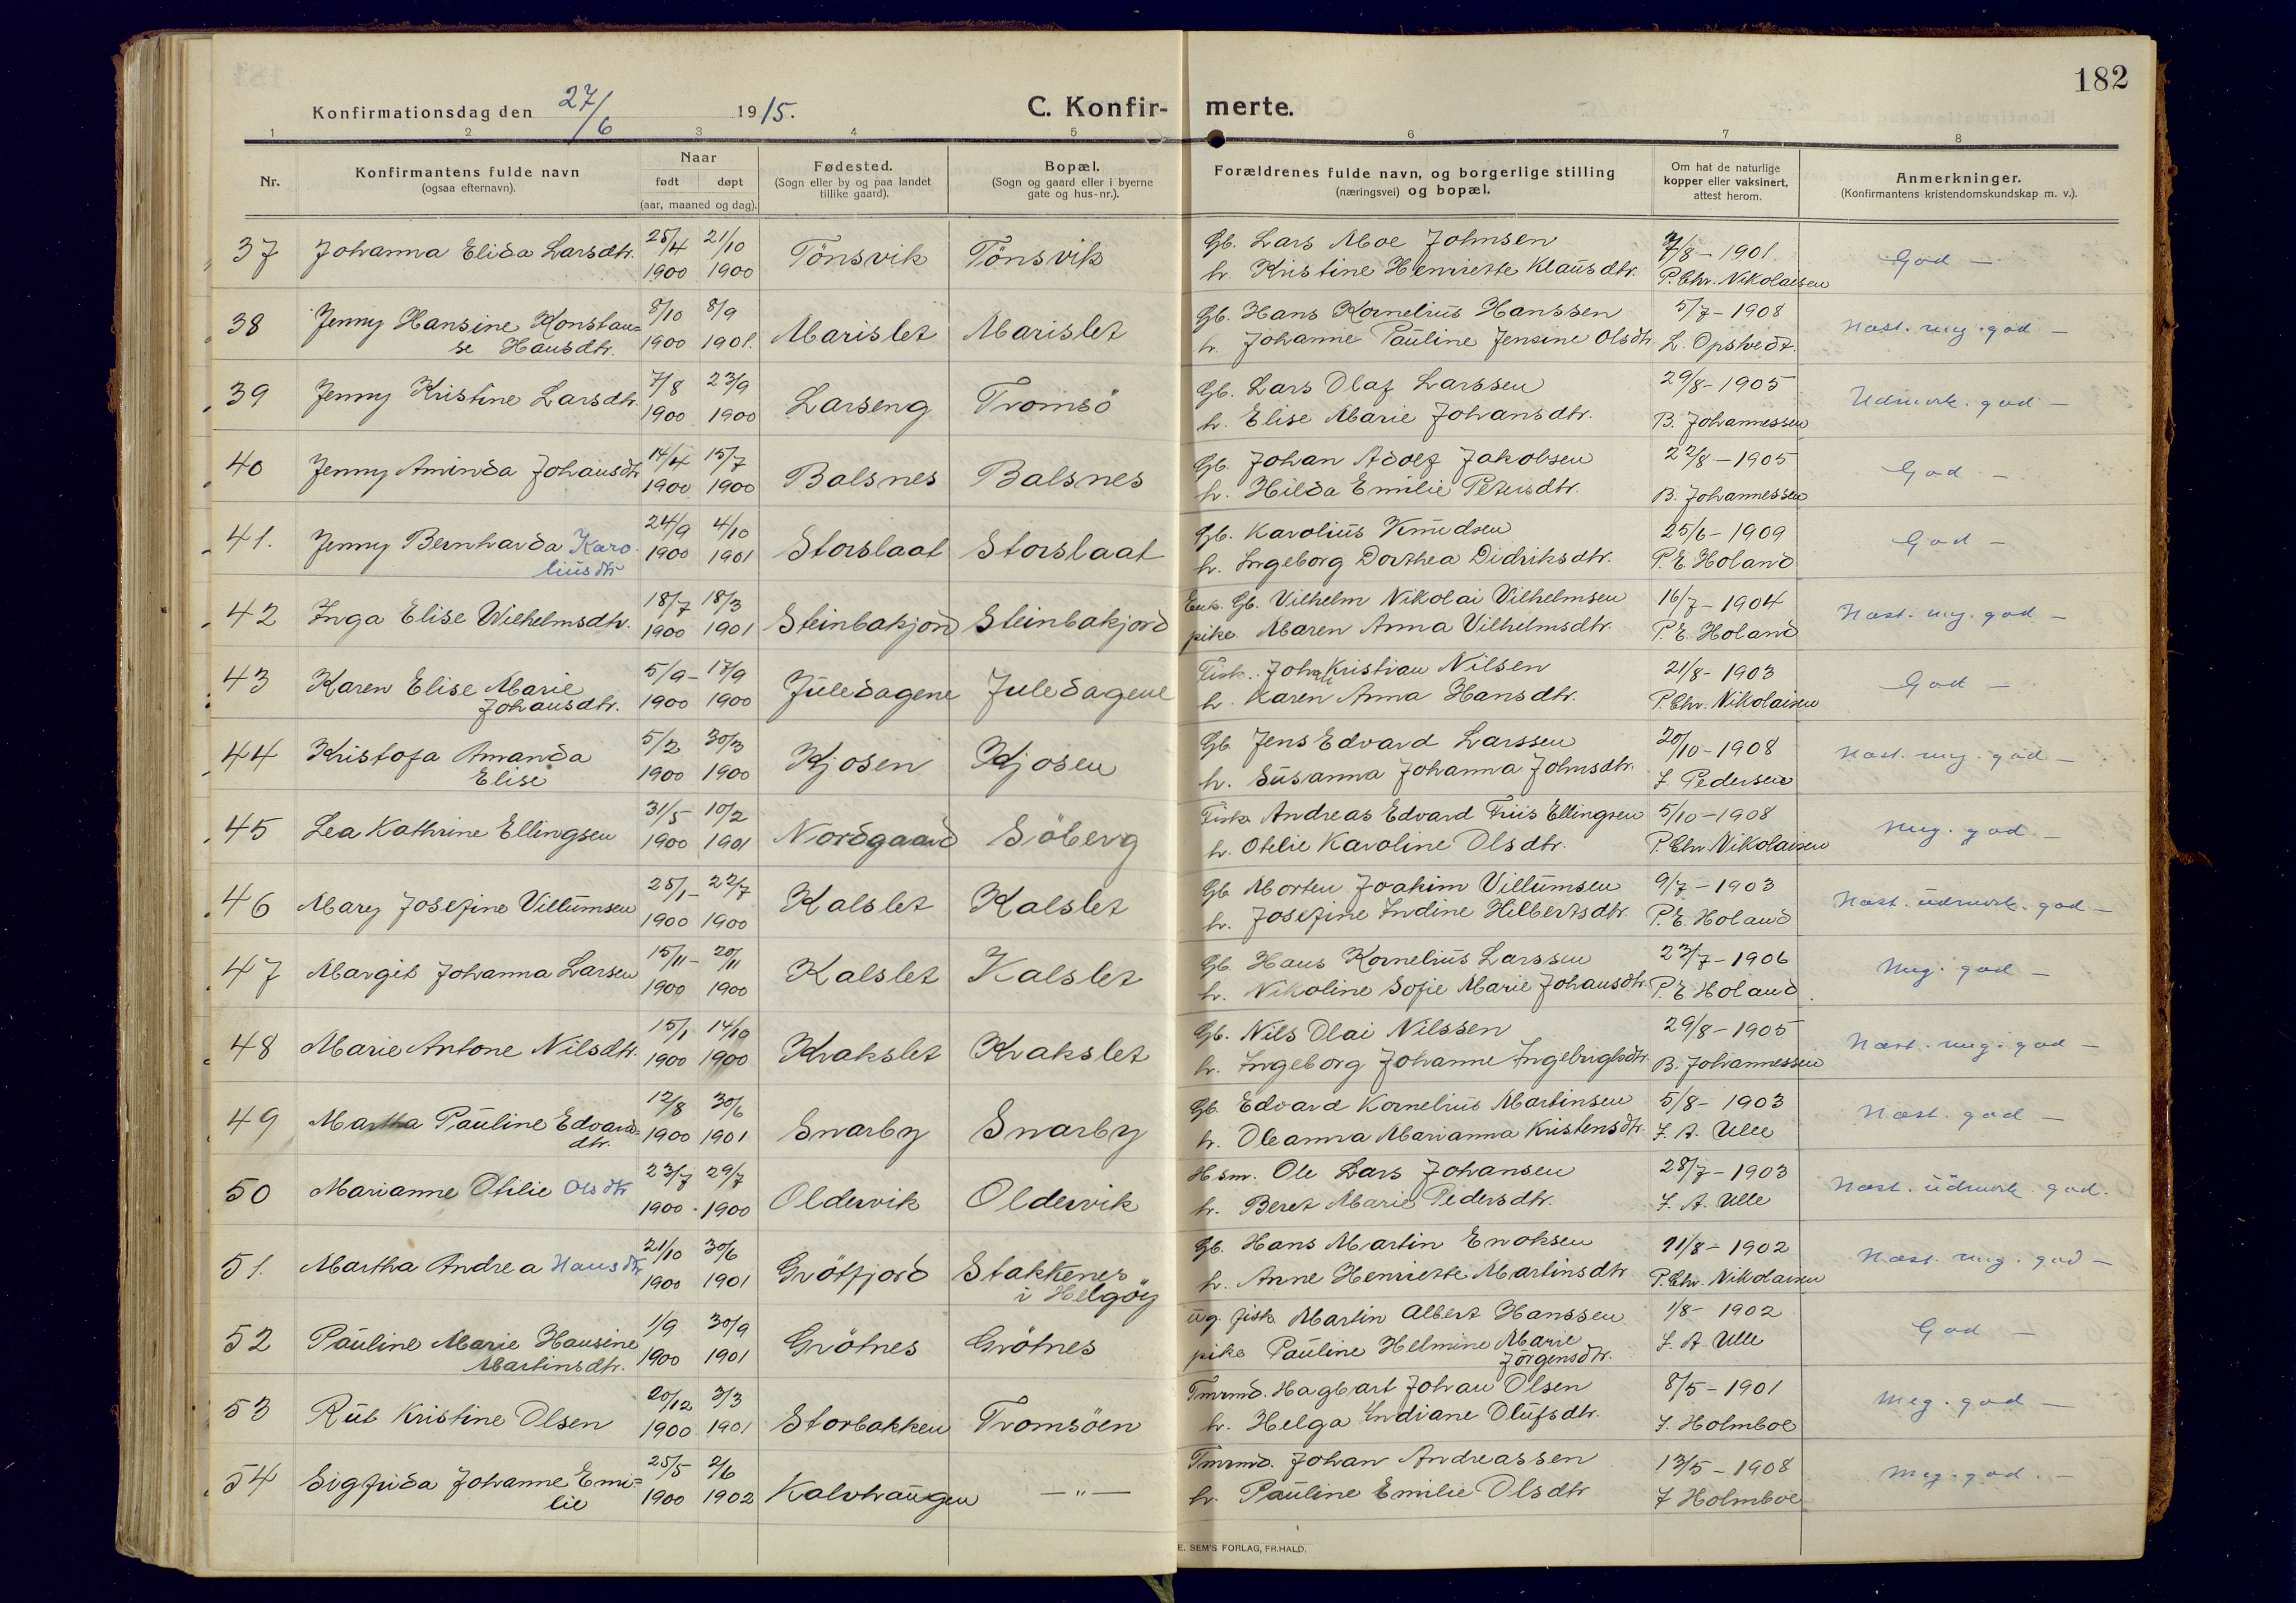 182
Konfirmationsdag den 27/6 1915.
C. Konfir- merte.
1 2 3 4 5 6 7 8
Nr.
Konfirmantens fulde navn
(ogsaa efternavn).
Naar
født døpt
(aar, maaned og dag).
Fødested.
(Sogn eller by og paa landet
tillike gaard).
Bopæl.
(Sogn og gaard eller i byerne
gate og hus-nr.).
Forældrenes fulde navn, og borgerlige stilling
(næringsvei) og bopæl.
Om hat de naturlige
kopper eller vaksinert,
attest herom.
Anmerkninger.
(Konfirmantens kristendomskundskap m. v.).
37 Johanna Elida Larsdtr. 25/4 21/10 Tönsvik Tönsvik Gb. Lars Moe Johnsen 7/8 - 1901 God -
1900 1900 h. Kristine Henriette Klausdtr. P. Chr. Nikolaisen
38 Jenny Hansine Konstan= 8/10 8/9 Marislet Marislet Gb. Hans Kornelius Hanssen 5/7 - 1908 Næst. meg. god -
se Hansdtr. 1900 1901. h. Johanne Pauline Jensine Olsdtr. L. Opstvedt.
39 Jenny Kristine Larsdtr. 7/8 23/9 Larseng Tromsö Gb. Lars Olaf Larssen 29/8 - 1905 Udmerk. god -
1900 1900 h. Elise Marie Johansdtr. B. Johannessen
40 Jenny Aminda Johansdtr 14/4 15/7 Balsnes Balsnes Gb. Johan Adolf Jakobsen 22/8 - 1905 God -
1900 1900 h. Hilda Emilie Petersdtr. B. Johannessen
41. Jenny Bernharda Karo 24/9 4/10 Storslaat Storslaat Gb. Karolius Knudsen 25/6 - 1909 God -
liusdtr 1900 1901 h. Ingeborg Dorthea Didriksdtr. P. E. Holand
42 Inga Elise Wilhelmsdtr. 18/7 18/3 Steinbakjord Steinbakjord Enk. Gb. Vilhelm Nikolai Vilhelmsen 16/7 - 1904 Næst. meg. god -
1900 1901 pike Maren Anna Vilhelmsdtr. P. E. Holand
43 Karen Elise Marie 5/9 - 17/9 Juledagene Juledagene Fisk. Johan Kristian Nilsen 21/8 - 1903 God -
Johansdtr. 1900 1900 h. Karen Anna Hansdtr. P. Chr. Nikolaisen
44 Kristofa Amanda 5/2 30/3 Kjosen Kjosen Gb. Jens Edvard Larssen 20/10 - 1908 Næst. meg. god -
Elise 1900 1900 h. Susanna Johanna Johnsdtr. J. Pedersen
45 Lea Kathrine Ellingsen 31/5 10/2 Nordgaard Söberg Fisk. Andreas Edvard Friis Ellingsen 5/10 - 1908 Meg. god -
1900 1901 h. Otelie Karoline Olsdtr. P. Chr. Nikolaisen
46 Mary Josefine Villumsen 25/1 - 22/7 Kalslet Kalslet Gb. Morten Joakim Villumsen 9/7 - 1903 Næst. udmerk. god -
1900 1900 h. Josefine Indine Hilbertsdtr. P. E. Holand
47 Margit Johanna Larsen 15/11 - 20/11 Kalslet Kalslet Gb. Hans Kornelius Larssen 23/7 - 1906 Meg. god -
1900 1900 h. Nikoline Sofie Marie Johansdtr. P. E. Holand
48 Marie Antone Nilsdtr. 15/1 14/10 Krakslet Krakslet Gb. Nils Olai Nilssen 29/8 - 1905 Næst. meg. god -
1900 1900 h. Ingeborg Johanne Ingebrigtsdtr. B. Johannessen
49 Martha Pauline Edvards= 12/8 30/6 Snarby Snarby Gb. Edvard Kornelius Martinsen 5/8 - 1903 Næst. god -
dtr. 1900 1901 h. Oleanna Marianna Kristensdtr. J. A. Ulle
50 Marianne Otelie Olsdtr 23/7 29/7 Oldervik Oldervik Hsm. Ole Lars Johansen 28/7 - 1903 Næst. udmerk. god.
1900 - 1900 h. Beret Marie Pedersdtr. J. A. Ulle
51. Martha Andrea Hansdtr 21/10 30/6 Grötfjord Stakkenes Gb. Hans Martin Enoksen 11/8 - 1902 Næst. meg. god -
1900 1901 i Helgöy h. Anne Henriette Martinsdtr P. Chr. Nikolaisen
52 Pauline Marie Hansine 1/9 30/9 Grötnes Grötnes ug. fisk. Martin Albert Hanssen 1/8 - 1902 God -
Martinsdtr. 1900 1901 pike Pauline Helmine Marie Jörgensdtr. J. A. Ulle
53 Rut Kristine Olsen 20/12 3/3 Storbakken Tromsöen Tmrmd. Hagbart Johan Olsen 8/5 - 1901 Meg. god -
1900 1901 h. Helga Indiane Olufsdtr. J. Holmboe
54 Sigfrida Johanne Emi= 25/5 2/6 Kalvhaugen — " — Tmrmd. Johan Andreassen 13/5 - 1908 Meg. god. -
lie 1900 1902 h. Pauline Emilie Olsdtr J Holmboe
E. SEM'S FORLAG, FR.HALD.